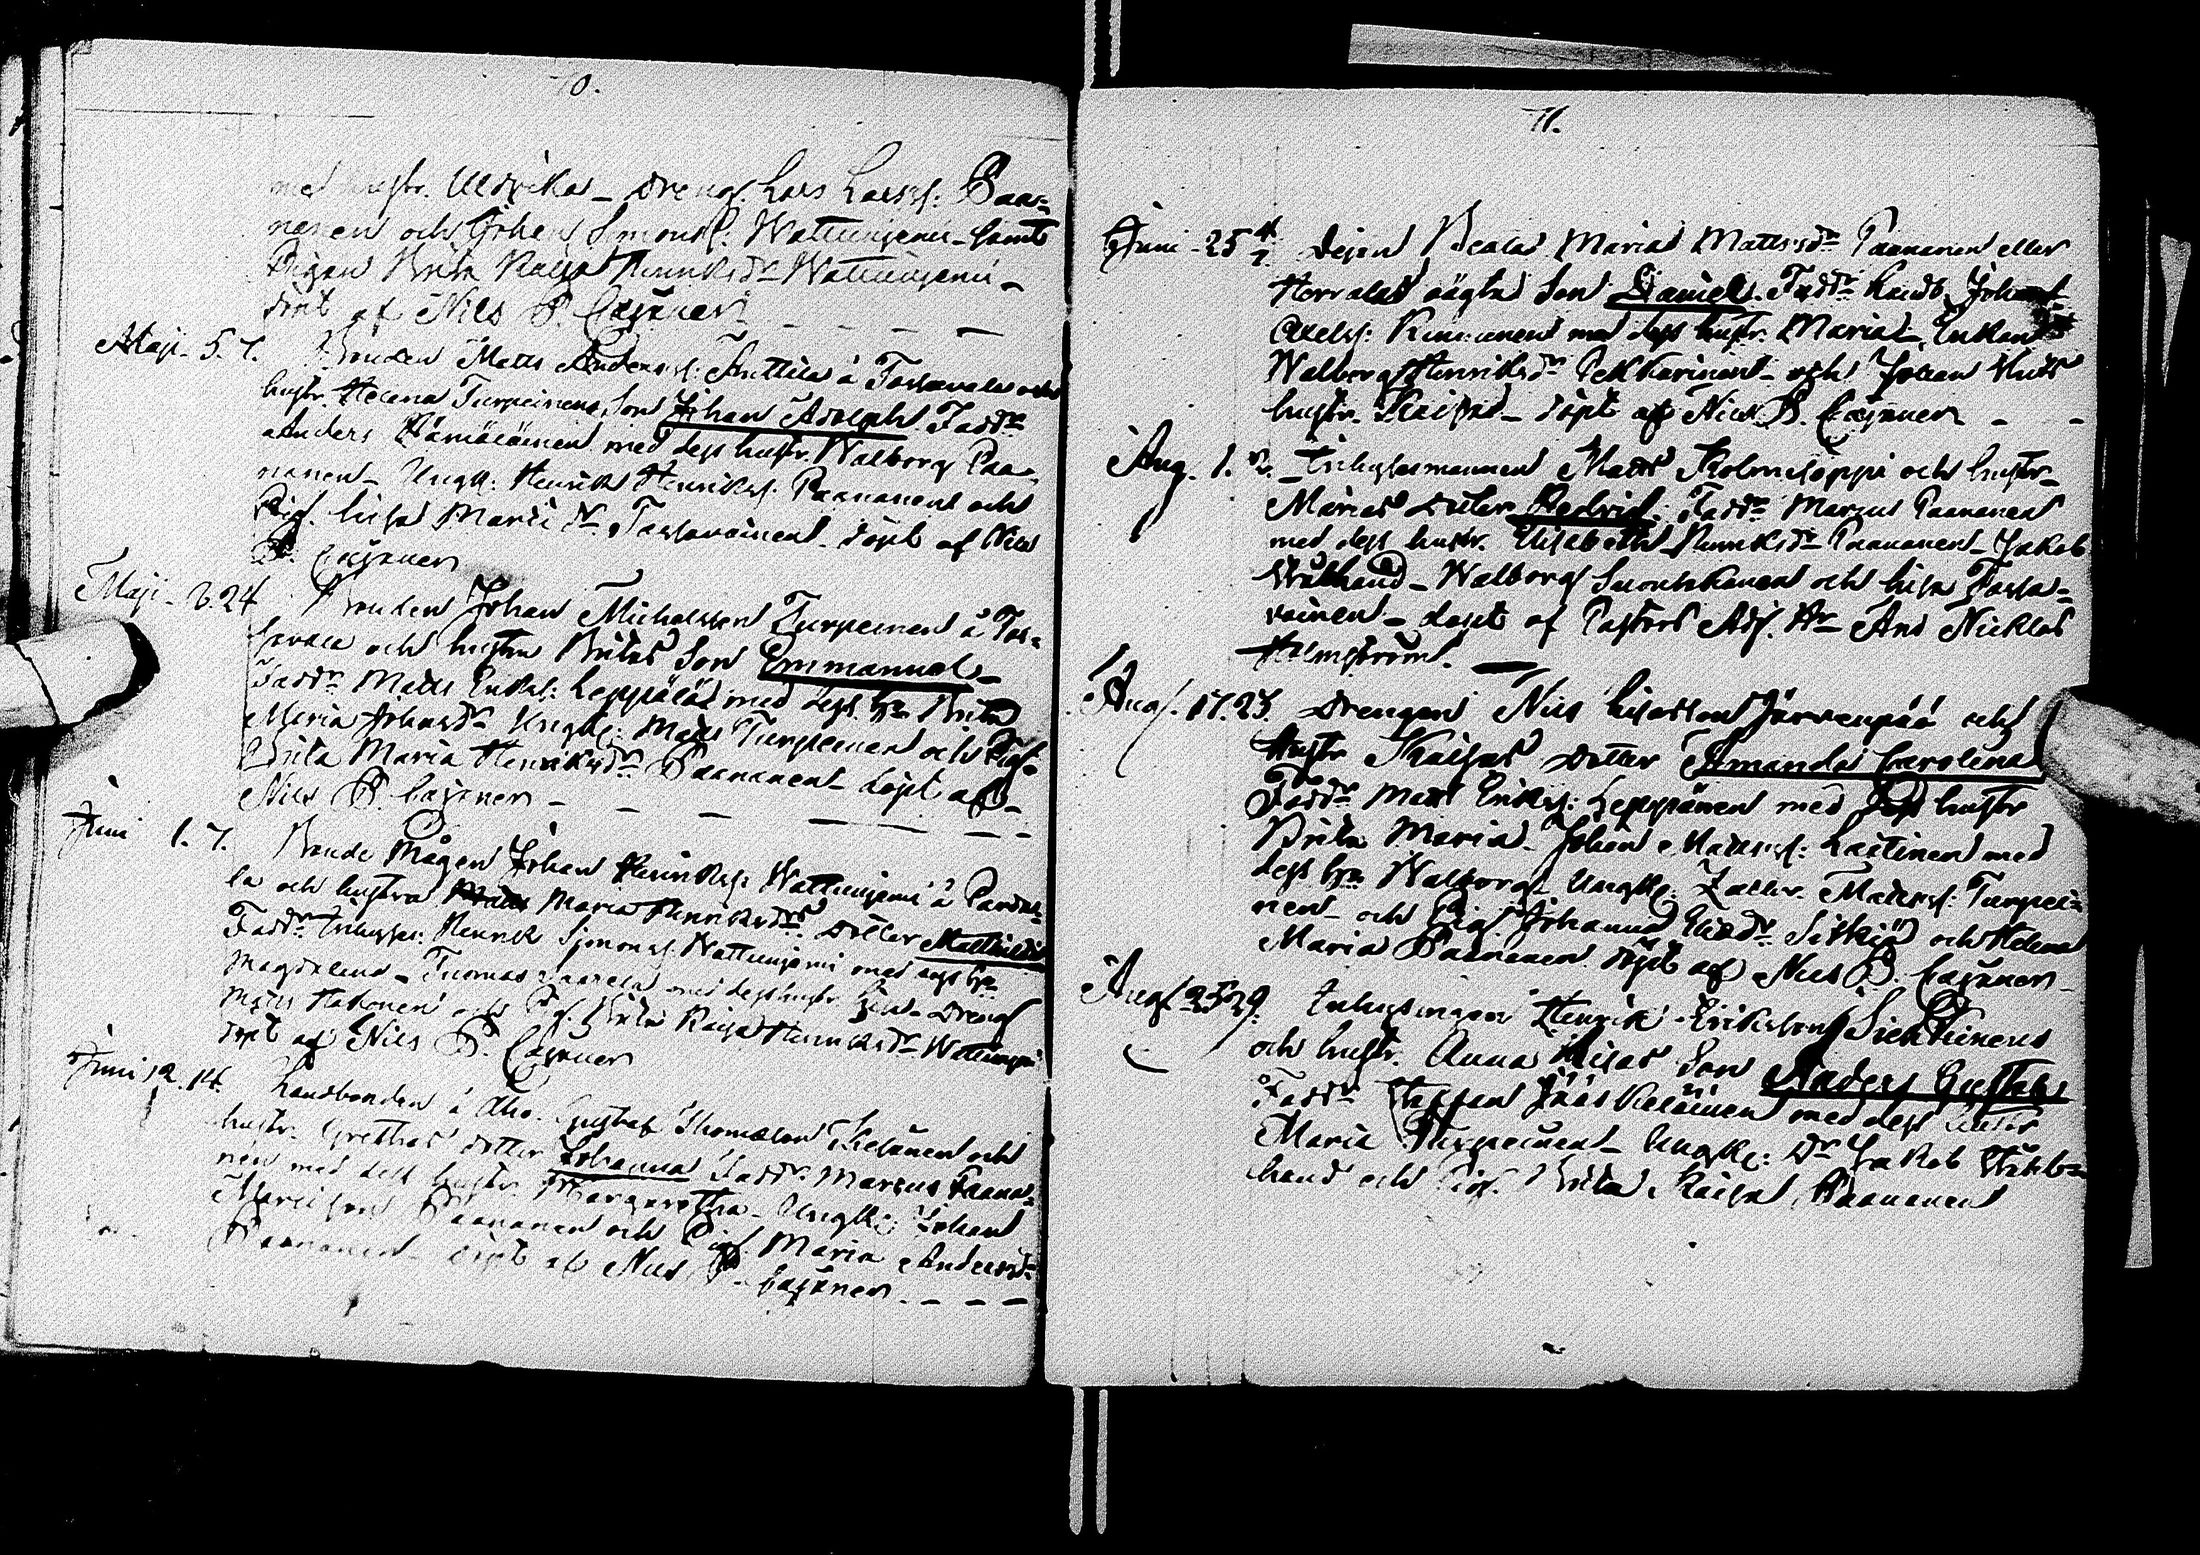 70.
med hustr. Uldrika - Dreng. Lars Larss: Baa=
nanen och Johan Simonss. Wattunjemi - samt
Pigan Brita Kaisa Henriksdr Wattunjemi -
döpt af Nils B. Cajaner
Maji 5. 7. Bonden Matts Anderss: Anttila å Tossavala och
hustr. Helena Turpeinens Son Johan Adolph Faddr
Anders Hämäläinen med dess hustr. Walborg Paa-
nanen - Ungk: Henrik Henrikss: Paananen och
Pig. Lisa Marci dr Tossavainen - döpt af Nils
B. Cajaner
Maji 24 Bonden Johan Michelsson Turpeinen å Tos=
savala och hustru Britas Son Emmanuel -
Faddr Matts Erikss: Leppälä med dess hu Brita
Maria Johansdr Ungk: Matts Turpeinen och Pig.
Brita Maria Henriksdr Baananen - döpt af
Nils B. Cajaner -
Juni 1. 7. Bonde Mågen Johan Henrikss: Wattunjemi å
la och hustru Maria Henriksdrs Dotter Mathilda
Faddr Inhyses: Henrik Simonss. Wattunjemi med dess hu
Magdalena - Thomas med dess hustr. - Dreng
Matts Hakonen och Pig. Brita Kaisa Henriksdr Wattunjemi
döpt af Nils B. Cajaner
Juni 12. 14. Landbonden å Aho. Gustaf Thomasson Kejonen och
hustr. Grethas dotter Johanna Faddr Marcus Paana=
nen med dess hustr. Margaretha - Ungk: Johan
Marcisson Paananen och Pig. Maria Andersdr
Baananen - döpt af Nils B. Cajaner - - -
71.
Juni 25 Dejan Beata Maria Mattsdr Paananen eller
Horralas oägta Son Daniel. Faddr Landb. Johan
Axelss: Kinnunen med dess hustr. Maria - Enkan
Walborg Henriksdr Pekkarinen - och Johan
hustr. Kaisa - döpt af Nils B. Cajaner - -
Aug. 1. Inhysesmannen Matts Kolmisoppi och hustr.
Marias Dotter Hedvig. Faddr Marcus Paananen
med dess hustr. Elisabeth Henriksdr Paananen - Jakob
Stålhand - Walborg Suontakanen och Lisa Tossa=
vainen - döpt af Pastors Adj. Hr And Nicklas
Holmström.
Aug. 17. 23. Drengen Nils Nilsson Järvenpää och
Hustr Kaisas Dotter Amanda Carolina
Faddr Matts Erikss: Leppänen med dess hustr
Brita Maria - Johan Matss: Laitinen med
dess hu Walborg - Ungk: Zacher. Matss: Turpei=
nen - och Pig. Johanna Sitkiä och Helena
Maria Baananen döpt af Nils B. Cajaner -
Aug. 25 29. Inhysingen Henrik Eriksson
och hustr. Anna Lisas Son Anders Gustaf
Faddr Staffan Jääskeläinen med dess
Maria Turpeinen - Ungk: Dr Jakob Stål=
hand och Pig. Brita Kaisa Paananen